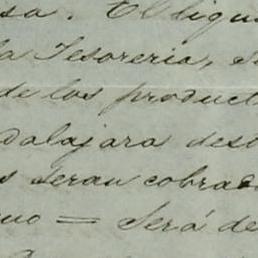 sa. El liqu
la Tesoreria, s
de los product
dalajara desd
s seran cobrad
uo = Será de